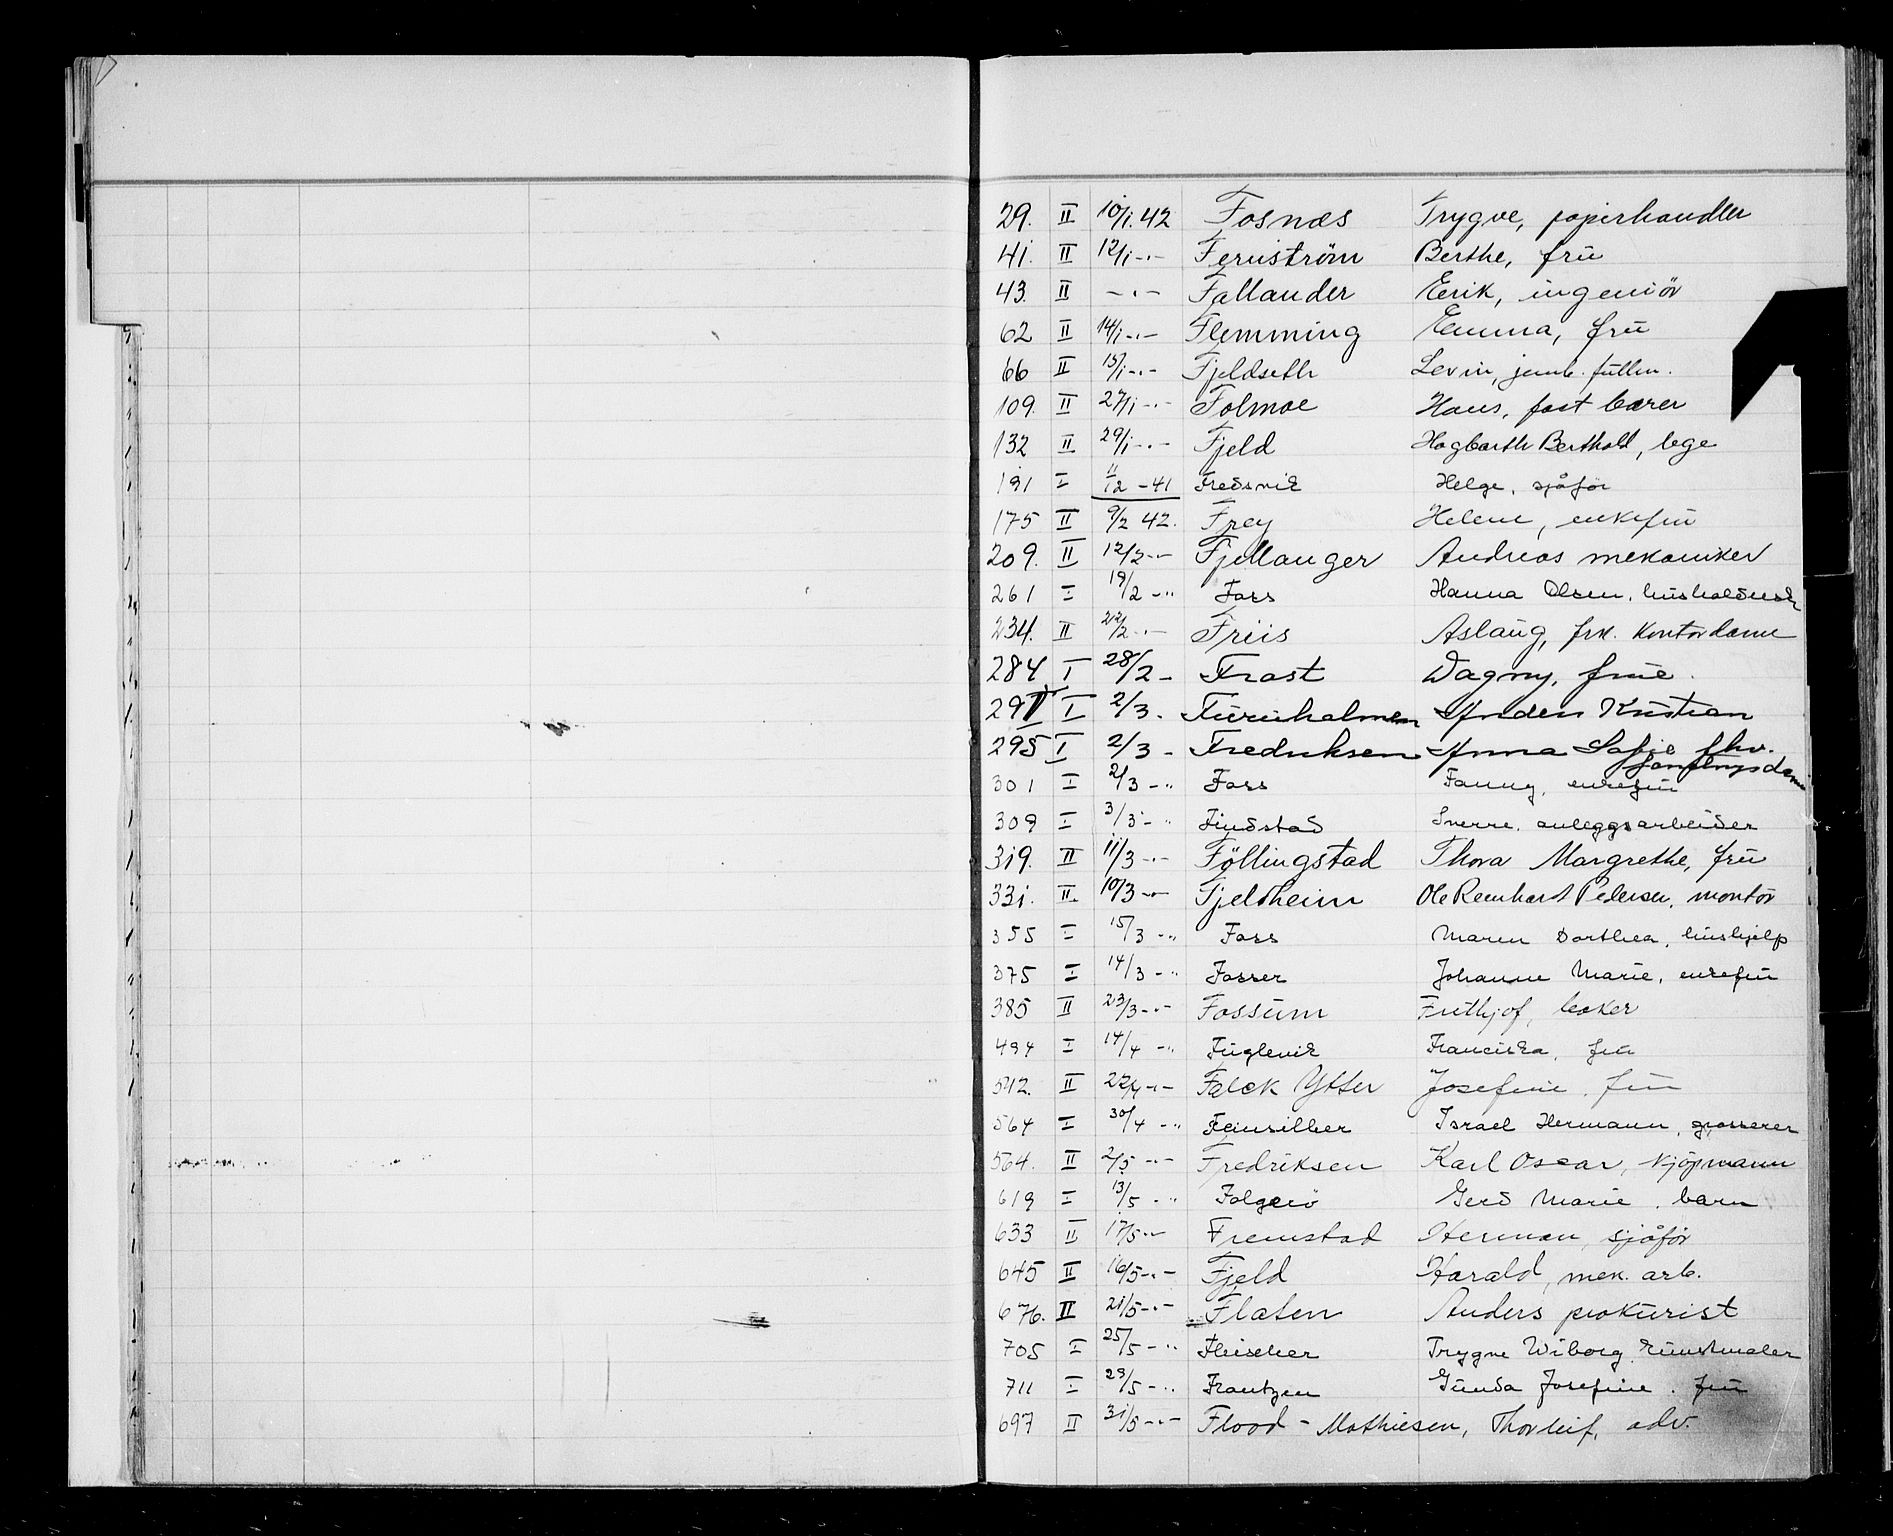 29. II 10/1. 42 Fosnæs Trygve, papirhandler
41. II 12/1 -"- Fernström Berthe, frü
43. II -"- Fallander Eerik, ingeniör
62 II 14/1 -"- Flemming Emma, frü
66 II 15/1 -"- Fjeldseth Levin, jernb. füllm.
109. II 27/1 -"- Folmoe Hans, post bærer
132 II 29/1 -"- Fjeld Hagbarth Berthold, lege
191 I 11/12 - 41 Fredsvik Helge, sjåför
175 II 9/2 42. Frey Helene, enkefrü
209. II 12/2 -"- Fjellanger Andreas mekaniker
261 I 19/2 -" Foss Hanna Olsen,
234. II 22/2 -"- Friis Aslaüg, frk. kontordame
284 I 28/2 - Frost Dagny, früe.
297 I 2/3. - Furuholmen Anders Kristian
295 I 2/3 - Fredriksen Anna Sofie fhv.
301 I 2/3 -" Foss Fanny, enkefrü
309 I 3/3 -" Findstad Sverre, anleggsarbeider
319. II 11/3 -"- Föllingstad Thora Margrethe, frü
331. II. 10/3 -"- Fjeldheim Ole Reinhard Pedersen, montör
355 I 15/3 -" Foss Maren Dorthea, hüshjelp
375 I 14/3 -" Fosser Johanne Marie, enkefrü
385 II 23/3 -"- Fossüm Frithjof, baker
494 I 14/4 -" Füglevik Franciska, frü
512. II 27/4 -"- Falck Ytter Josefine, frü
564 I 30/4 -" Feinsilber Israel Hermann, grosserer
564. II 2/5 -"- Fredriksen Karl Oscar, kjöpmann
619 I 13/5 -" Folgerö Gerd Marie, barn
633 II 17/5 -"- Fremstad Herman, sjåför
645 II 16/5 -"- Fjeld Harald, mek. arb.
676. II 21/5 -"- Flaten Anders prokürist
705 I 25/5 -" Fleischer Trygve Wiborg, künstmaler
711 I 29/5 -" Frantzen Günda Josefine, frü
697 II 31/5 -"- Flood - Mathiesen, Thorleif, adv.